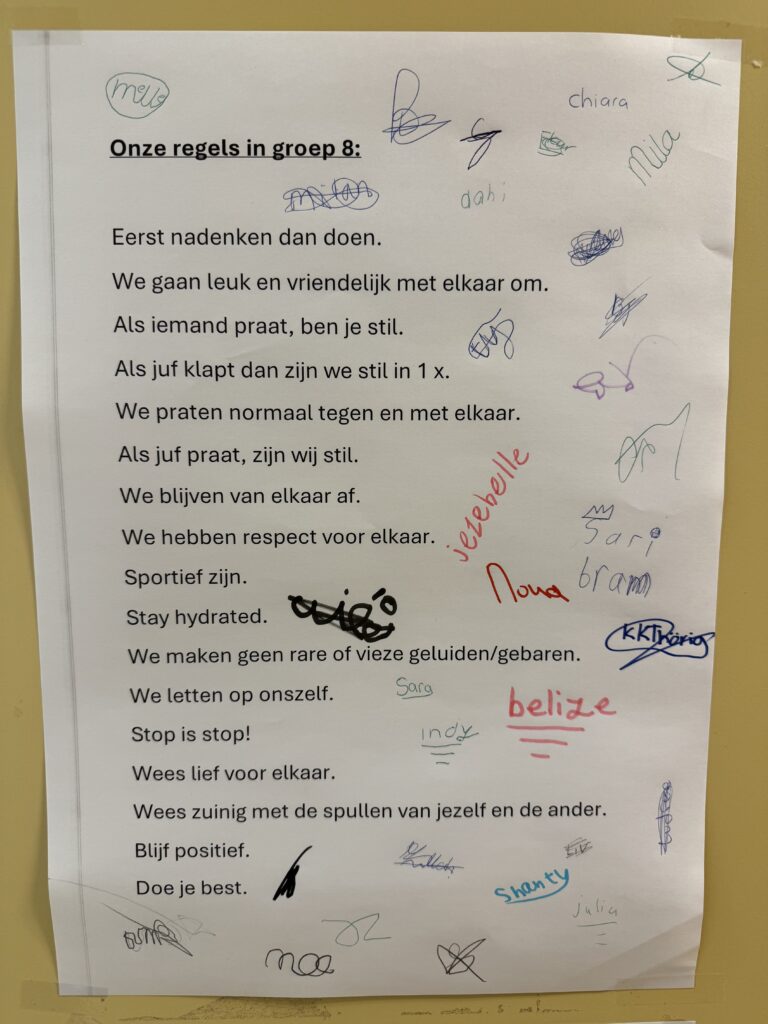 melle
chiara
Onze regels in groep 8:
Mila
milan
dahi
Eerst nadenken dan doen.
We gaan leuk en vriendelijk met elkaar om.
Als iemand praat, ben je stil.
Als juf klapt dan zijn we stil in 1 x.
We praten normaal tegen en met elkaar.
Als juf praat, zijn wij stil.
jezebelle
We blijven van elkaar af.
We hebben respect voor elkaar.
Sari
Sportief zijn.
Nova
bram
Stay hydrated.
We maken geen rare of vieze geluiden/gebaren.
We letten op onszelf.
Sara
belize
Stop is stop!
indy
Wees lief voor elkaar.
Wees zuinig met de spullen van jezelf en de ander.
Blijf positief.
Doe je best.
Shanty
julia
noa